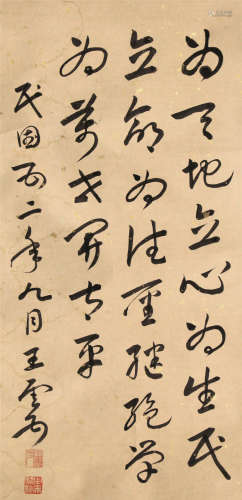 為天地立心為生民
立命為往聖繼絕學
為萬世開太平
民國二年九月王雲五